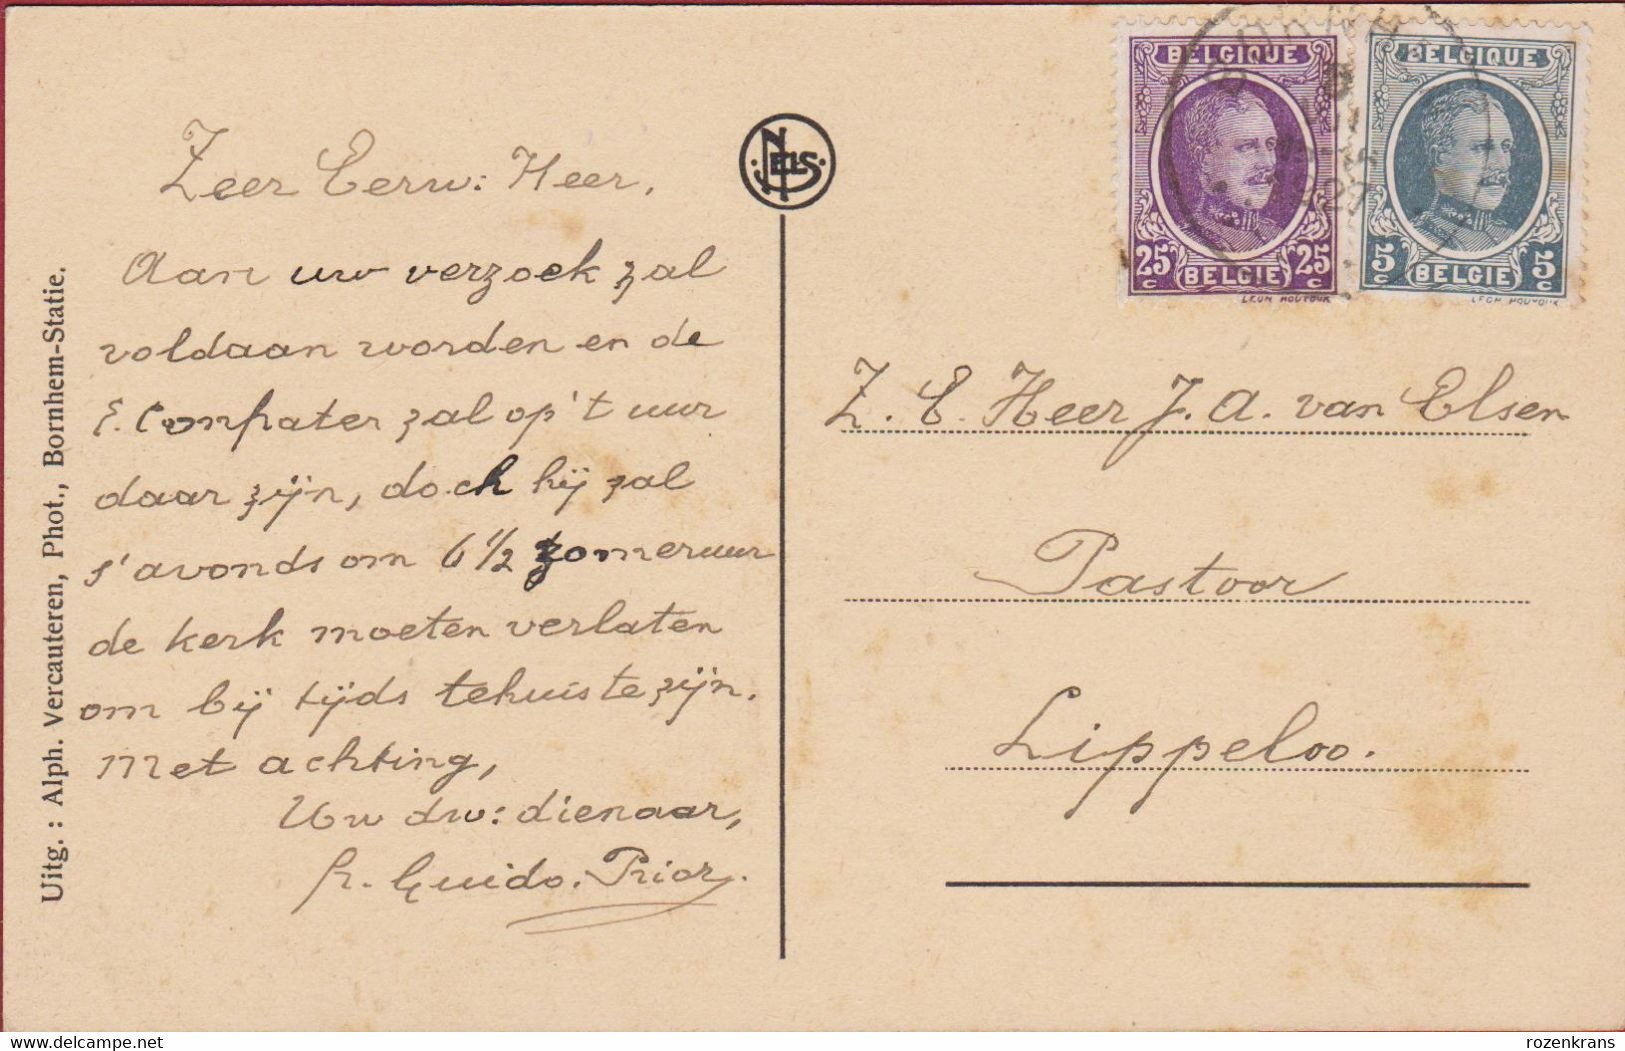 Zeer Eerw: Heer,
Aan uw verzoek zal
voldaan worden en de
E. Compater zal op 't uur
daar zijn, doch hij zal
s' avonds om 6 1/2 zomeruur
de kerk moeten verlaten
om bij tijds tehuis te zijn.
Met achting,
Uw dw: dienaar,
Guido. Prior.
Uitg. : Alph. Vercauteren, Phot., Bornhem-Statie.
NELS
BELGIQUE
25 c 25 c
BELGIE
LEON HOUYOUX
BELGIQUE
5 c 5 c
BELGIE
27
Z. E. Heer J. A. van Elsen
Pastoor
Lippeloo.
rozenkrans